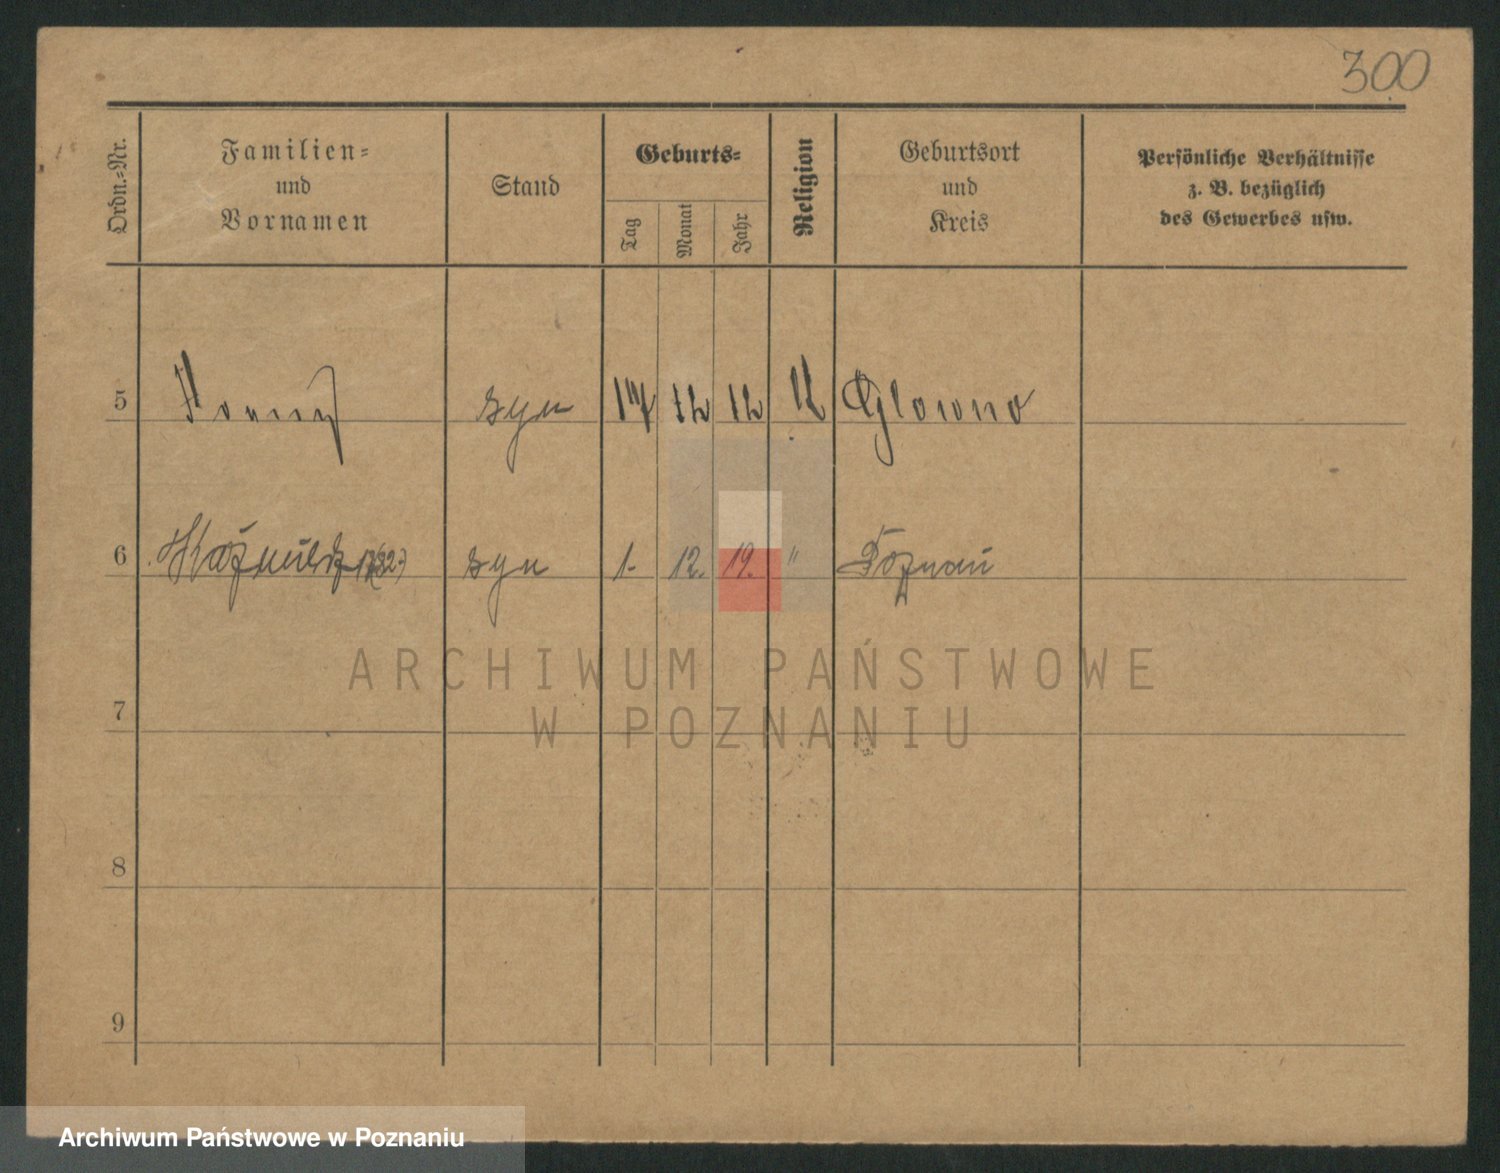 300
Ordn.-Nr.
Familien-
und
Vornamen
Stand
Geburts-
Tag
Monat
Jahr
Religion
Geburtsort
und
Kreis
Persönliche Verhältnisse
z. B. bezüglich
des Gewerbes usw.
5 syn 17 12 12 Glowno
6 syn 1. 12. 19. " Poznań
7
8
9
ARCHIWUM PAŃSTWOWE
W POZNANIU
Archiwum Państwowe w Poznaniu